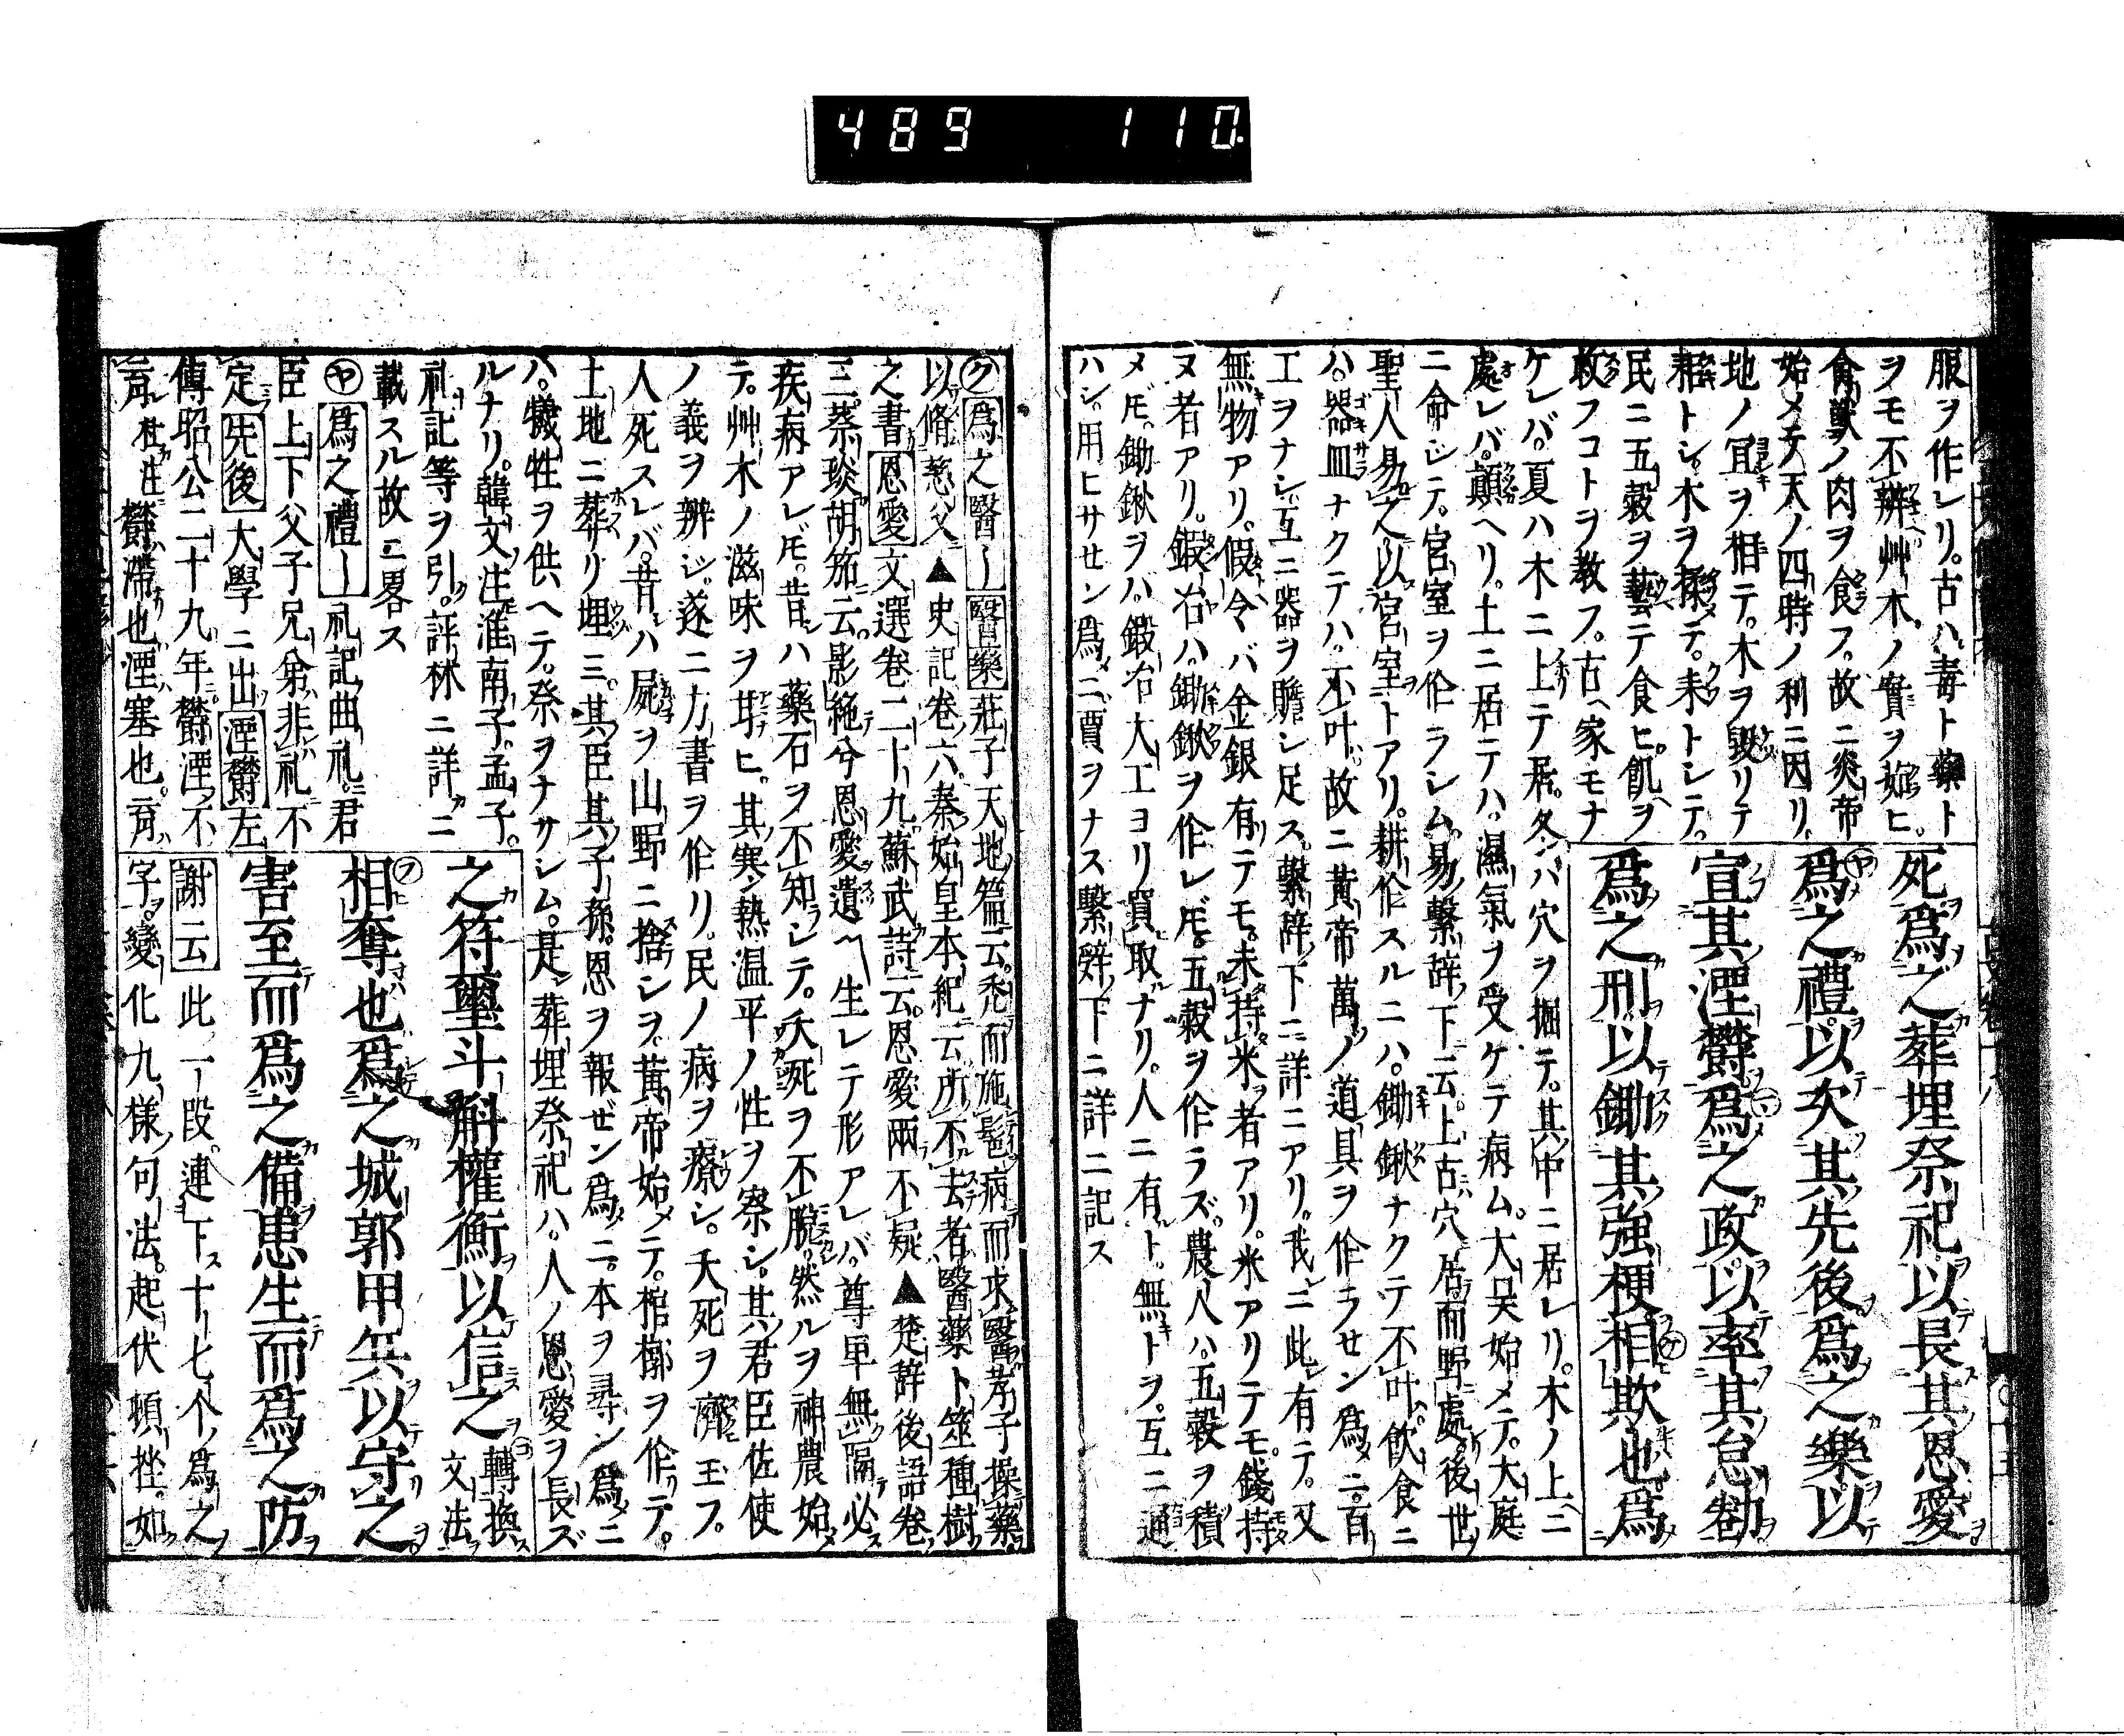 489 110
服ヲ作レリ。古ハ毒ト藥ト
ヲモ不辨艸木ノ實ヲ茹ヒ。
禽獸ノ肉ヲ食フ。故ニ炎帝
始メテ天ノ四時ノ利ニ因リ。
地ノ宜ヲ相テ。木ヲ斲リテ
耜トシ。木ヲ揉テ。耒トシテ。
民ニ五穀ヲ藝テ食ヒ。飢ヲ
救フコトヲ教フ。古ヘ家モナ
死爲之葬埋祭祀以長其恩愛
爲之禮以次其先後爲之樂以
宣其湮鬱爲之政以率其怠勌
爲之刑以鋤其強梗相欺也爲
ケレバ。夏ハ木ニ上テ居。冬ハ穴ヲ掘テ。其中ニ居レリ。木ノ上ニ
處レバ。顛ヘリ。土ニ居テハ。濕氣ヲ受ケテ病ム。大昊始メテ。大庭
ニ命シテ。宮室ヲ作ラシム。易繫辭下云。上古穴居而野處。後世
聖人易之以宮室トアリ。耕作スルニハ。鋤鍬ナクテ不叶。飲食ニ
ハ。器皿ナクテハ。不叶。故ニ黃帝萬ノ道具ヲ作ラセン爲メニ。百
工ヲナシ。互ニ器ヲ贍シ足ス。繫辭下ニ詳ニアリ。我ニ此有テ。又
無物アリ。假令バ金銀有テモ。未持米者アリ。米アリテモ。錢持
ヌ者アリ。鍛冶ハ。鋤鍬ヲ作レドモ。五穀ヲ作ラズ。農人ハ。五穀ヲ積
メドモ。鋤鍬ヲハ。鍛冶大工ヨリ買取ナリ。人ニ有ト。無トヲ。互ニ通
ハシ。用ヒサセン爲メニ。賈ヲナス繫辭下ニ詳ニ記ス
㋗爲之醫〡醫藥莊子天地篇云。禿而施髢病而求醫孝子操藥
以脩慈父▲史記卷六。秦始皇本紀云所不去者。醫藥ト筮種樹
之書恩愛文選卷二十九蘇武詩云。恩愛兩不疑▲楚辭後語卷
三。蔡琰胡笳云。影絶兮恩愛遺〽生レテ形アレバ。尊卑無隔必
疾病アレドモ。昔ハ藥石ヲ不知シテ。夭死ヲ不脫。然ルヲ神農始
テ。艸木ノ滋味ヲ甞ヒ。其寒熱温平ノ性ヲ察シ。其君臣佐使
ノ義ヲ辨シ。遂ニ方書ヲ作リ。民ノ病ヲ療シ。夭死ヲ濟玉フ。
人死スレバ。昔ハ屍ヲ山野ニ捨シヲ。黃帝始メテ。棺槨ヲ作テ。
土地ニ葬リ埋ミ。其臣其子孫。恩ヲ報ゼン爲メニ。本ヲ尋ン爲メニ
ハ。犧牲ヲ供ヘテ。祭ヲナサシム。是葬埋祭祀ハ。人ノ恩愛ヲ長ズ
ルナリ。韓文注淮南子。孟子。
礼記等ヲ引。評林ニ詳カニ
載スル故ニ畧ス
㋳爲之禮〡礼記曲礼。君
臣上下父子兄弟。非礼不
定先後大學ニ出湮鬱左
傳昭公二十九年。鬱湮不
育。杜注鬱滯也湮塞也。育
之符璽斗斛權衡以信之轉換文法
相奪也爲之城郭甲兵以守之
害至而爲之備患生而爲之防
謝云此一段。連下十七个爲之
字。變化九樣句法。起伏頓挫。如